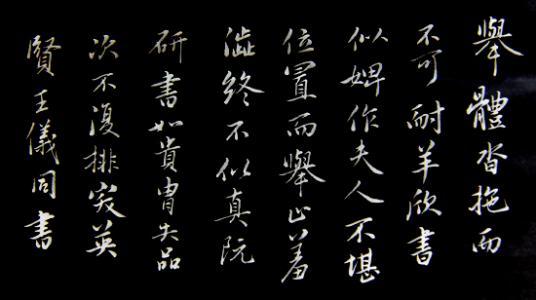 舉體沓拖而
不可耐羊欣書
似婢作夫人不堪
位置而舉止羞
澁終不似真阮
研書如貴胄失品
次不復排突英
賢王儀同書